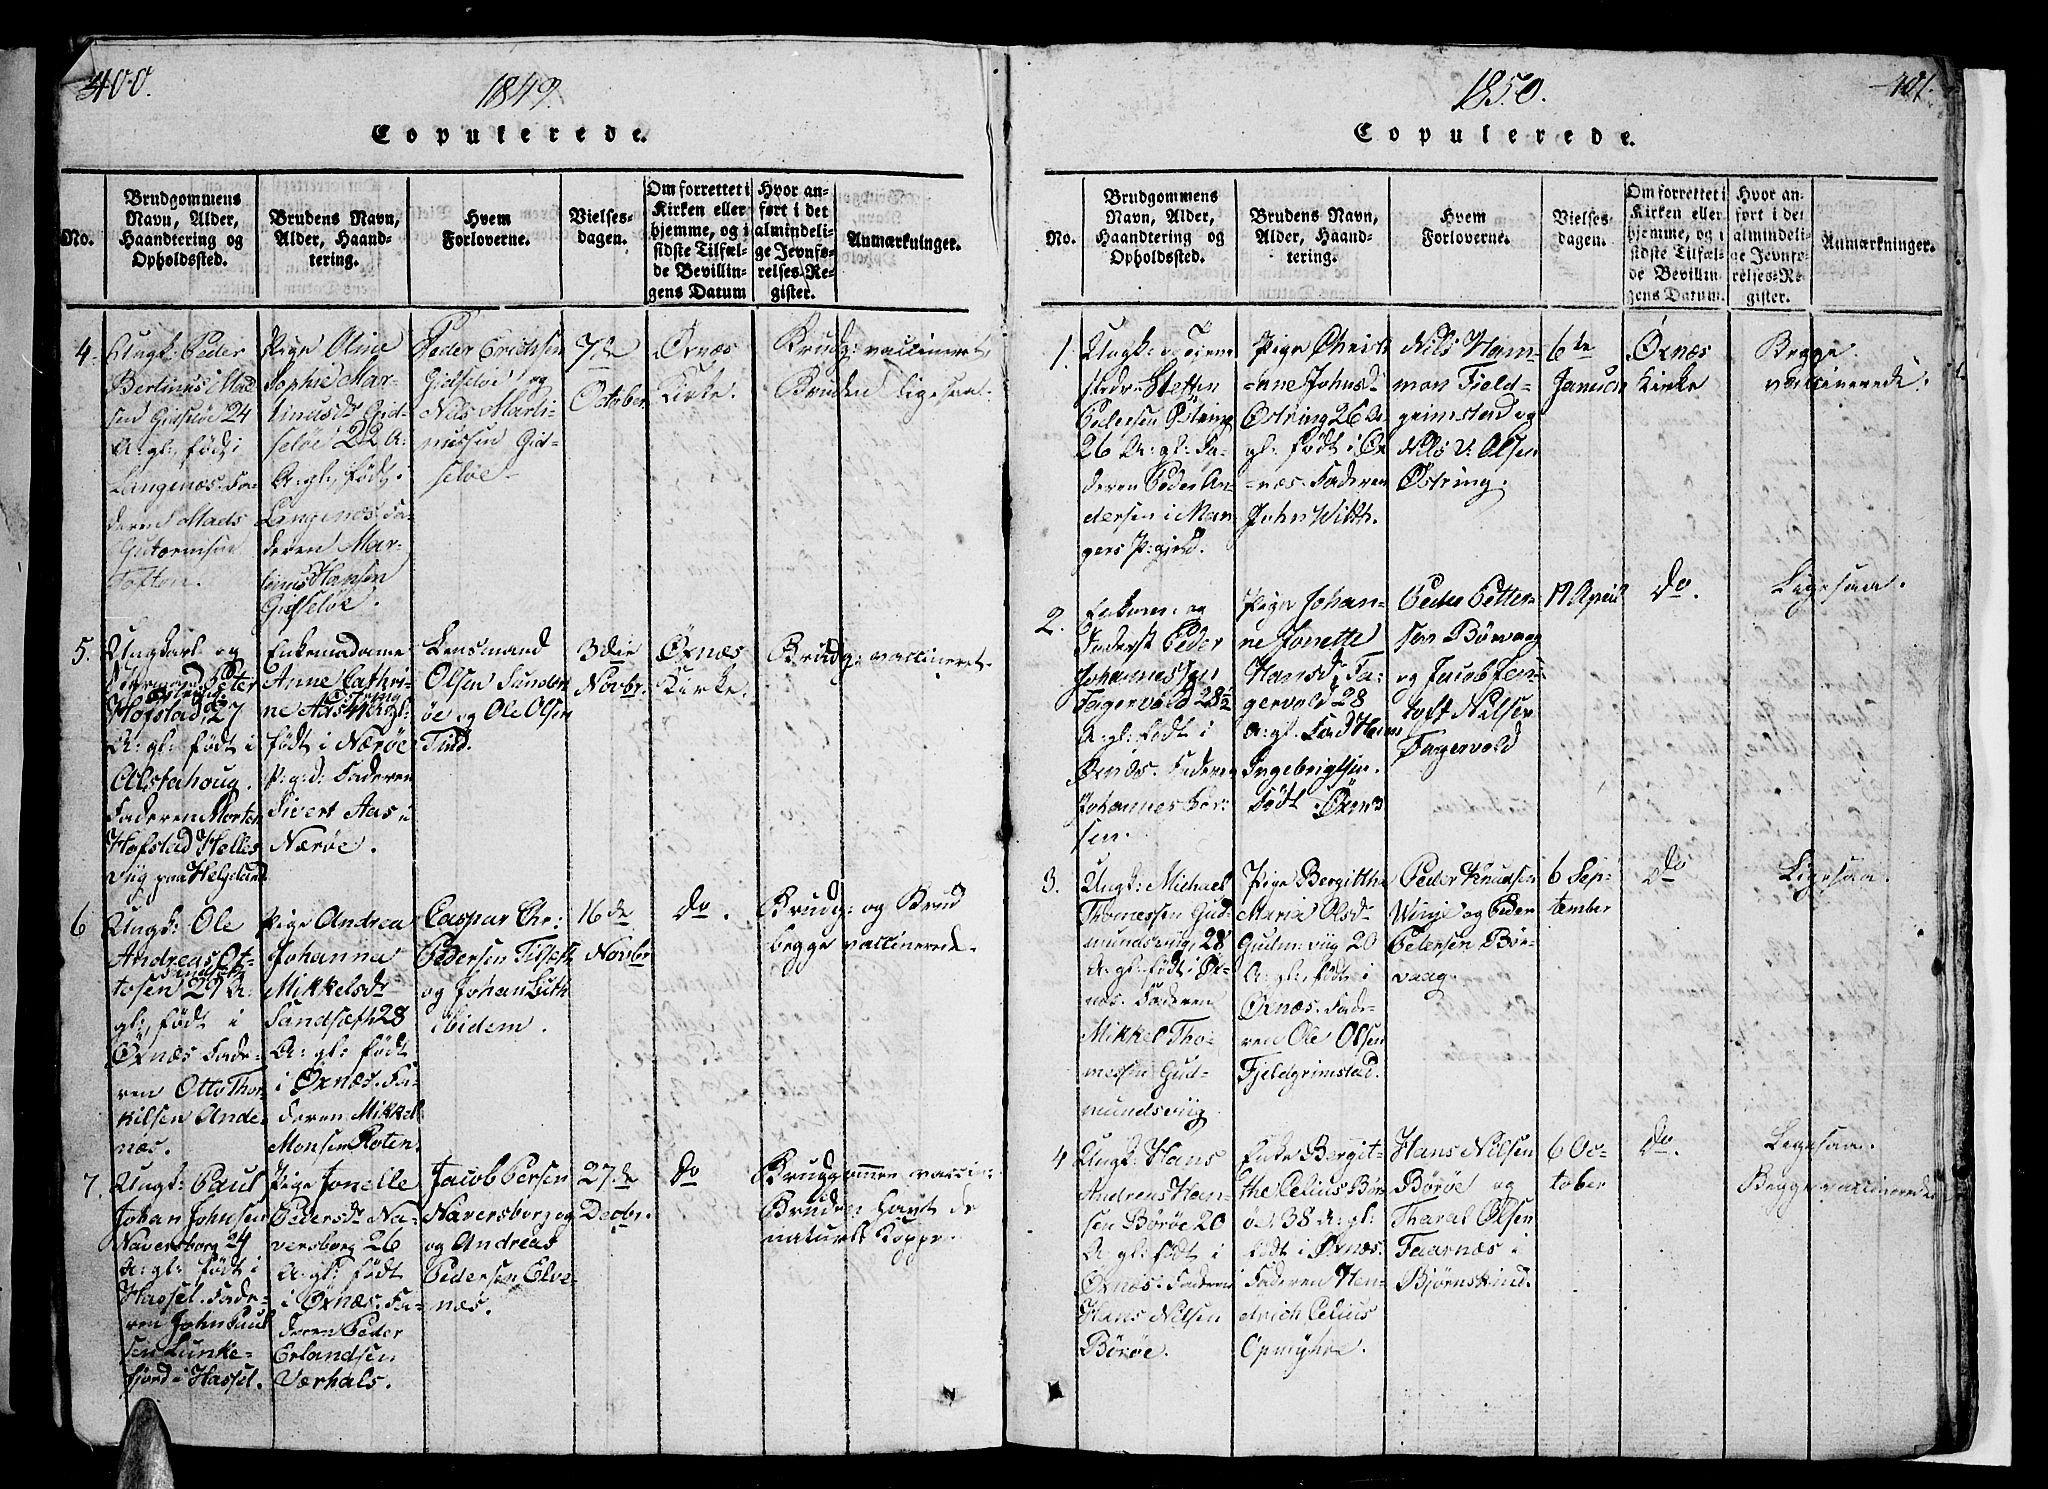 400.
1849.
Copulerede.
No.
Brudgommens
Navn, Alder,
Haandtering og
Opholdssted.
Brudens Navn,
Alder, Haand-
tering.
Hvem
Forloverne.
Vielses-
dagen.
Om forrettet i
Kirken eller
hjemme, og i
sidste Tilfæl-
de Bevillin-
gens Datum
Hvor an-
ført i det
almindeli-
ge Jevnfø-
relses-Re-
gister.
Anmærkninger.
4.
Ungk: Peder
Bertinus Mad
sen Gidsløe 24
A: gl: født i
Langenæs. Fa-
deren Mads
Guttormsen
Toften.
Pige Oline
Sophie Mar-
tinusd: Gid-
seløe 22 A:
A: gl:, født
Langenæs, Fa-
deren Mar-
tinus Hansen
Gidseløe.
Peder Erichsen
Gidseløe og
Nils Marti-
nussen Gid-
seløe
7de
October
Öxnæs
Kirke.
Brudg: vaccineret,
Bruden ligesaa.
5.
Ungkarl og
Peter
Hofstad, 27
A: gl: født i
Alstahoug.
Faderen Morten
Hofstad Helles
viig paa Helgeland
Enkemadame
Anne Cathri-
ne Aas
født i Nærøe
P: g: d: Faderen
Sivert Aas i
Nærøe.
Lensmand
Olsen Sunder
øe og Ole Olsen
Tind.
3die
Novbr.
Öxnæs
Kirke.
Brudg: vaccineret.
6
Ungk: Ole
Andreas Ot-
Sandset
tosen 29 A:
gl:, født i
Öxnæs Fade-
ren Otto Thor
kilsen Ande-
næs.
Pige Andrea
Johanna
Mikkelsdr
Sandsæth 28
A: gl: født
i Öxnæs. Fa-
deren Mikkel
Monsen Roten.
Caspar Chr:
Pedersen Tilseth
og Johan Luth
ibidem.
16de
Novbr
do.
Brudg: og Brud
begge vaccinerede.
7.
Ungk: Paul
Johan Johnsen
Naversborg 24
A: gl: født i
Hassel. Fade-
ren John Paul
sen Lunke-
fjord i Hassel.
Pige Jonelle
Pedersdr Na-
versborg 26
A: gl: født
i Öxnæs. Fa-
deren Peder
Erlandsen
Værhals.
Jacob Persen
Naversborg og
og Andreas
Pedersen Elve-
næs.
27de
Decbr.
do
Brudgommen vaccin:
Bruden havt de
naturl: Kopper.
401.
1850.
Copulerede.
No.
Brudgommens
Navn, Alder,
Haandtering og
Opholdssted.
Brudens Navn,
Alder, Haand-
tering.
Hvem
Forloverne.
Vielses-
dagen.
Om forrettet i
Kirken eller
hjemme, og i
sidste Tilfæl-
de Bevillin-
gens Datum.
Hvor an-
ført i det
almindeli-
ge Jevnfø-
relses-Re-
gister.
Anmærkninger.
1.
Ungk: og Tjene
Steffen
Pedersen Østring
26 A: gl: Fa-
deren Peder An-
dersen i Man
gers P: gjeld.
Pige Christi
-ane Johnsd:
Østring 26 A:
gl: født i Öx
-næs. Faderen
John Witth.
Nils Ham-
mon Field-
grimstad og
Nils v: Olsen
Østring.
6te
Januar
Öxnæs
Kirke
Begge
vaccinerede.
2.
Enkem: og
Peder
Johannessen
Fagervold 28½
A: gl: født i
Öxnæs. Faderen
Johannes Lar-
sen.
Pige Johan-
ne Jonette
Hansd: Fa-
gervold 28
A: gl. Fad Hans
Ingebrigtsen.
Født Öxnæs
Peder Petter-
sen Børvaag
og Jacob Jen-
toft Nilsen
Fagervold
19 April
do.
Ligesaa.
3.
Ungk: Michael
Thomessen Gud-
mundsviig 28
A: gl: født i Öx-
næs. Faderen
Mikkel Tho-
messen Gud-
mundsviig
Pige Bergitthe
Maria Olsdr
Gudm:viig 20
A: gl:, født i
Öxnæs. Fade-
ren Ole Olsen
Fjeldgrimstad.
Peder Knudsen
Winje og Peder
Petersen Bør-
vaag.
6 Sep-
tember
do
Ligesaa.
4
Ungk: Hans
Andreas Han-
sen Börøe 20
A: gl: født i
Öxnæs. Faderen
Hans Nilsen
Börøe.
Enke Bergit-
the Celius Bør
øe 38 A: gl:
født i Öxnæs.
Faderen Hen-
drich Celius
Opmyhre.
Hans Nilsen
Börøe og
Tharal Olsen
Faarnæs i
Bjørnskind.
6 Oc-
tober
do.
Ligesaa.
Begge vaccinerede